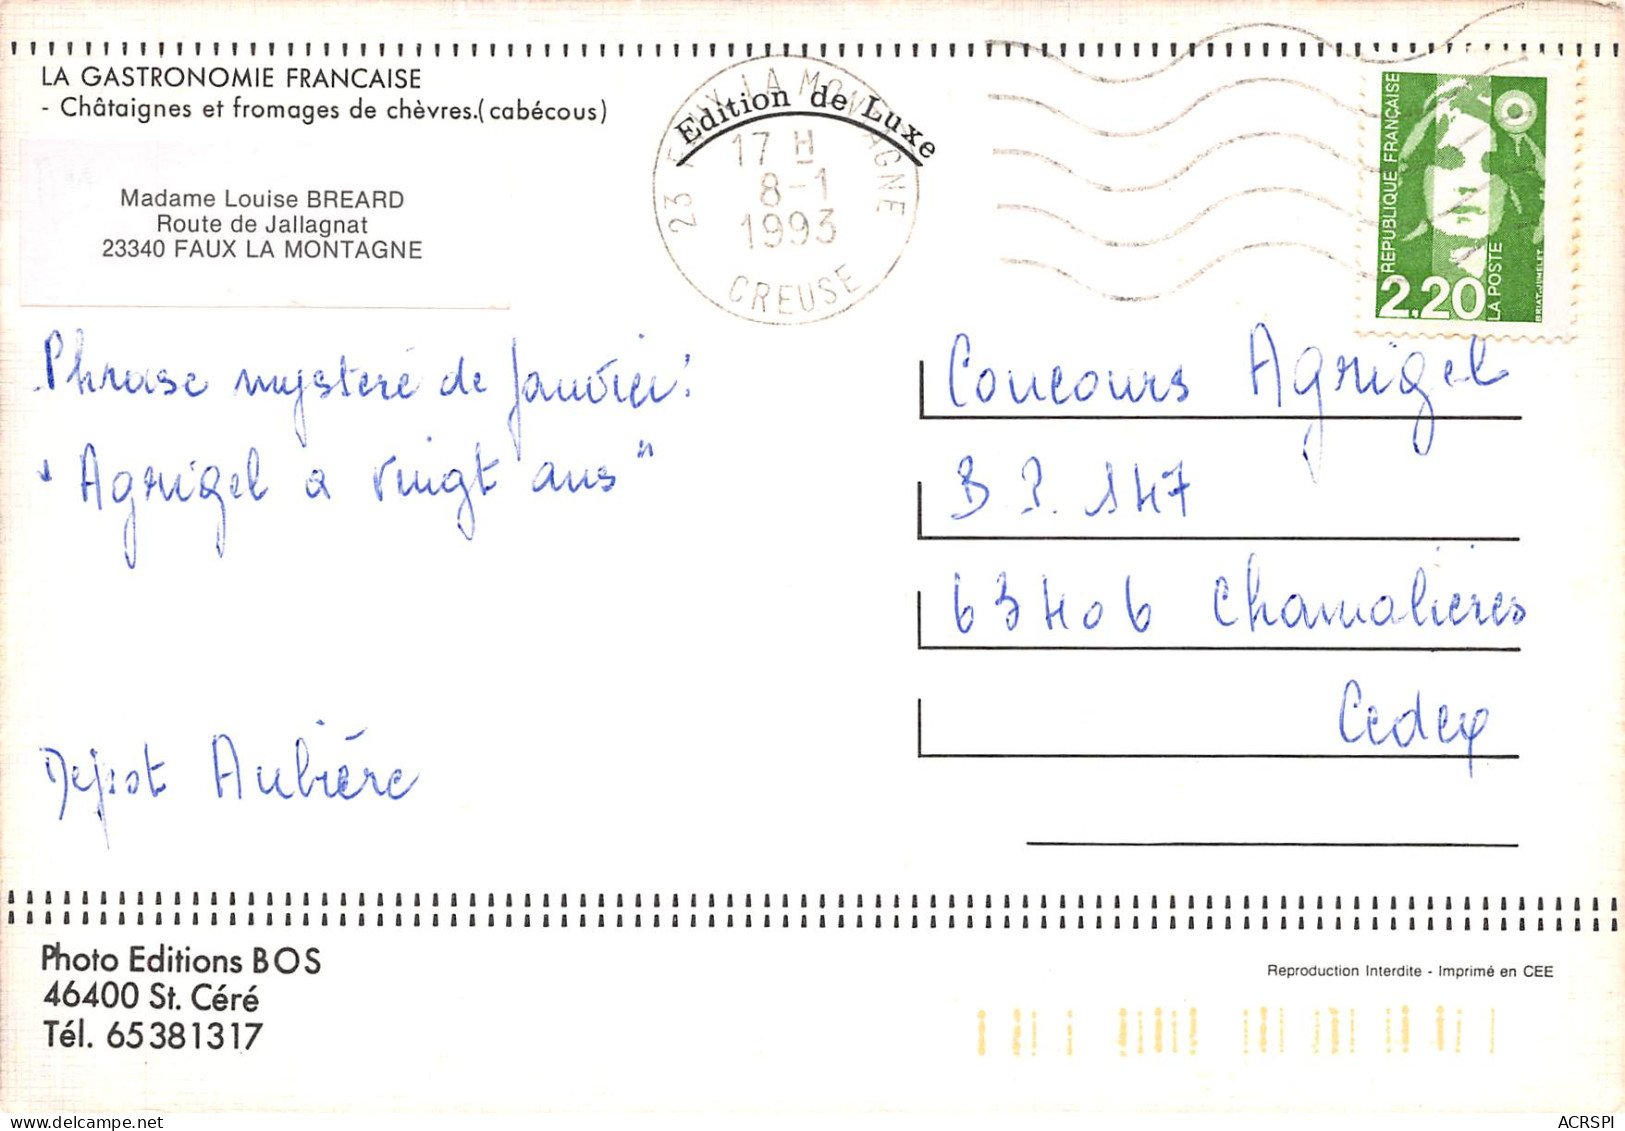 LA GASTRONOMIE FRANCAISE
- Châtaignes et fromages de chèvres.(cabécous)
Edition de Luxe
23 FAUX LA MONTAGNE
17 H
8-1
1993
CREUSE
REPUBLIQUE FRANÇAISE
2,20
LA POSTE
BRIAT-JUMELET
Madame Louise BREARD
Route de Jallagnat
23340 FAUX LA MONTAGNE
Phrase mystere de Janvier :
" Agrigel a vingt ans "
Depot Aubière
Concours Agrigel
B.P. 147
63406 Chamalières
Cedex
Photo Editions BOS
46400 St. Céré
Tél. 65381317
Reproduction Interdite - Imprimé en CEE
ACRSPI